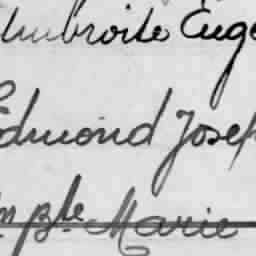 Ambroise Eugè
Edmond Josep
n Bte Marie